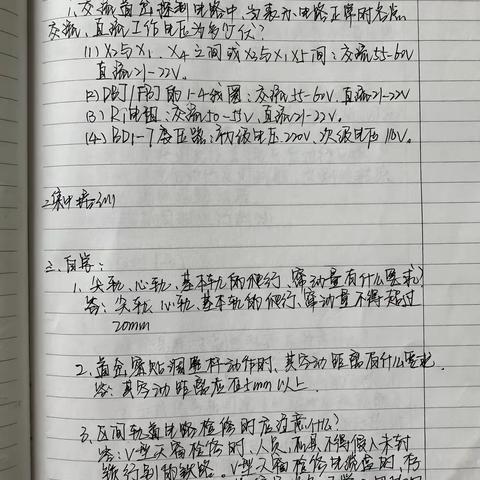 1、交流道岔控制电路中,当表示电路正常时各点
交流、直流工作电压为多少伏?
(1) X2与X1、X4之间或X3与X1X5间:交流55-60V
直流21-22V.
(2) DBJ/FBJ的1-4线圈:交流55-60V.直流21-22V
(3) R1电阻:交流50-55V,直流21-22V.
(4) BD1-7变压器:初级电压220V,次级电压110V.
二.集中培训
三、自学:
1、尖轨、心轨、基本轨的爬行、窜动量有什么要求?
答:尖轨、心轨、基本轨的爬行、窜动量不得超过
20mm
2、道岔密贴调整杆动作时、其空动距离有什么要求.
答:其空动距离应在5mm以上.
3、区间轨道电路检修时应注意什么?
答:V型天窗检修时、人员、机具不得侵入未封
锁行别的铁路。V型天窗检修